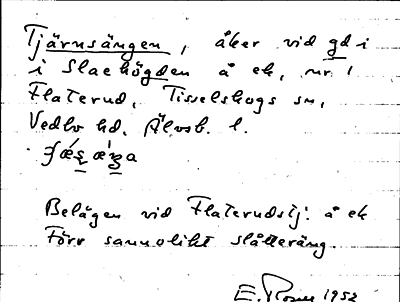 Tjärnsängen, åker vid gd i
i Slaehögden å ek, nr 1
Flaterud, Tisselskogs sn,
Vedbo hd. Älvsb. l.
Belägen vid Flaterudstj. å ek
Förr sannolikt slåtteräng.
1952